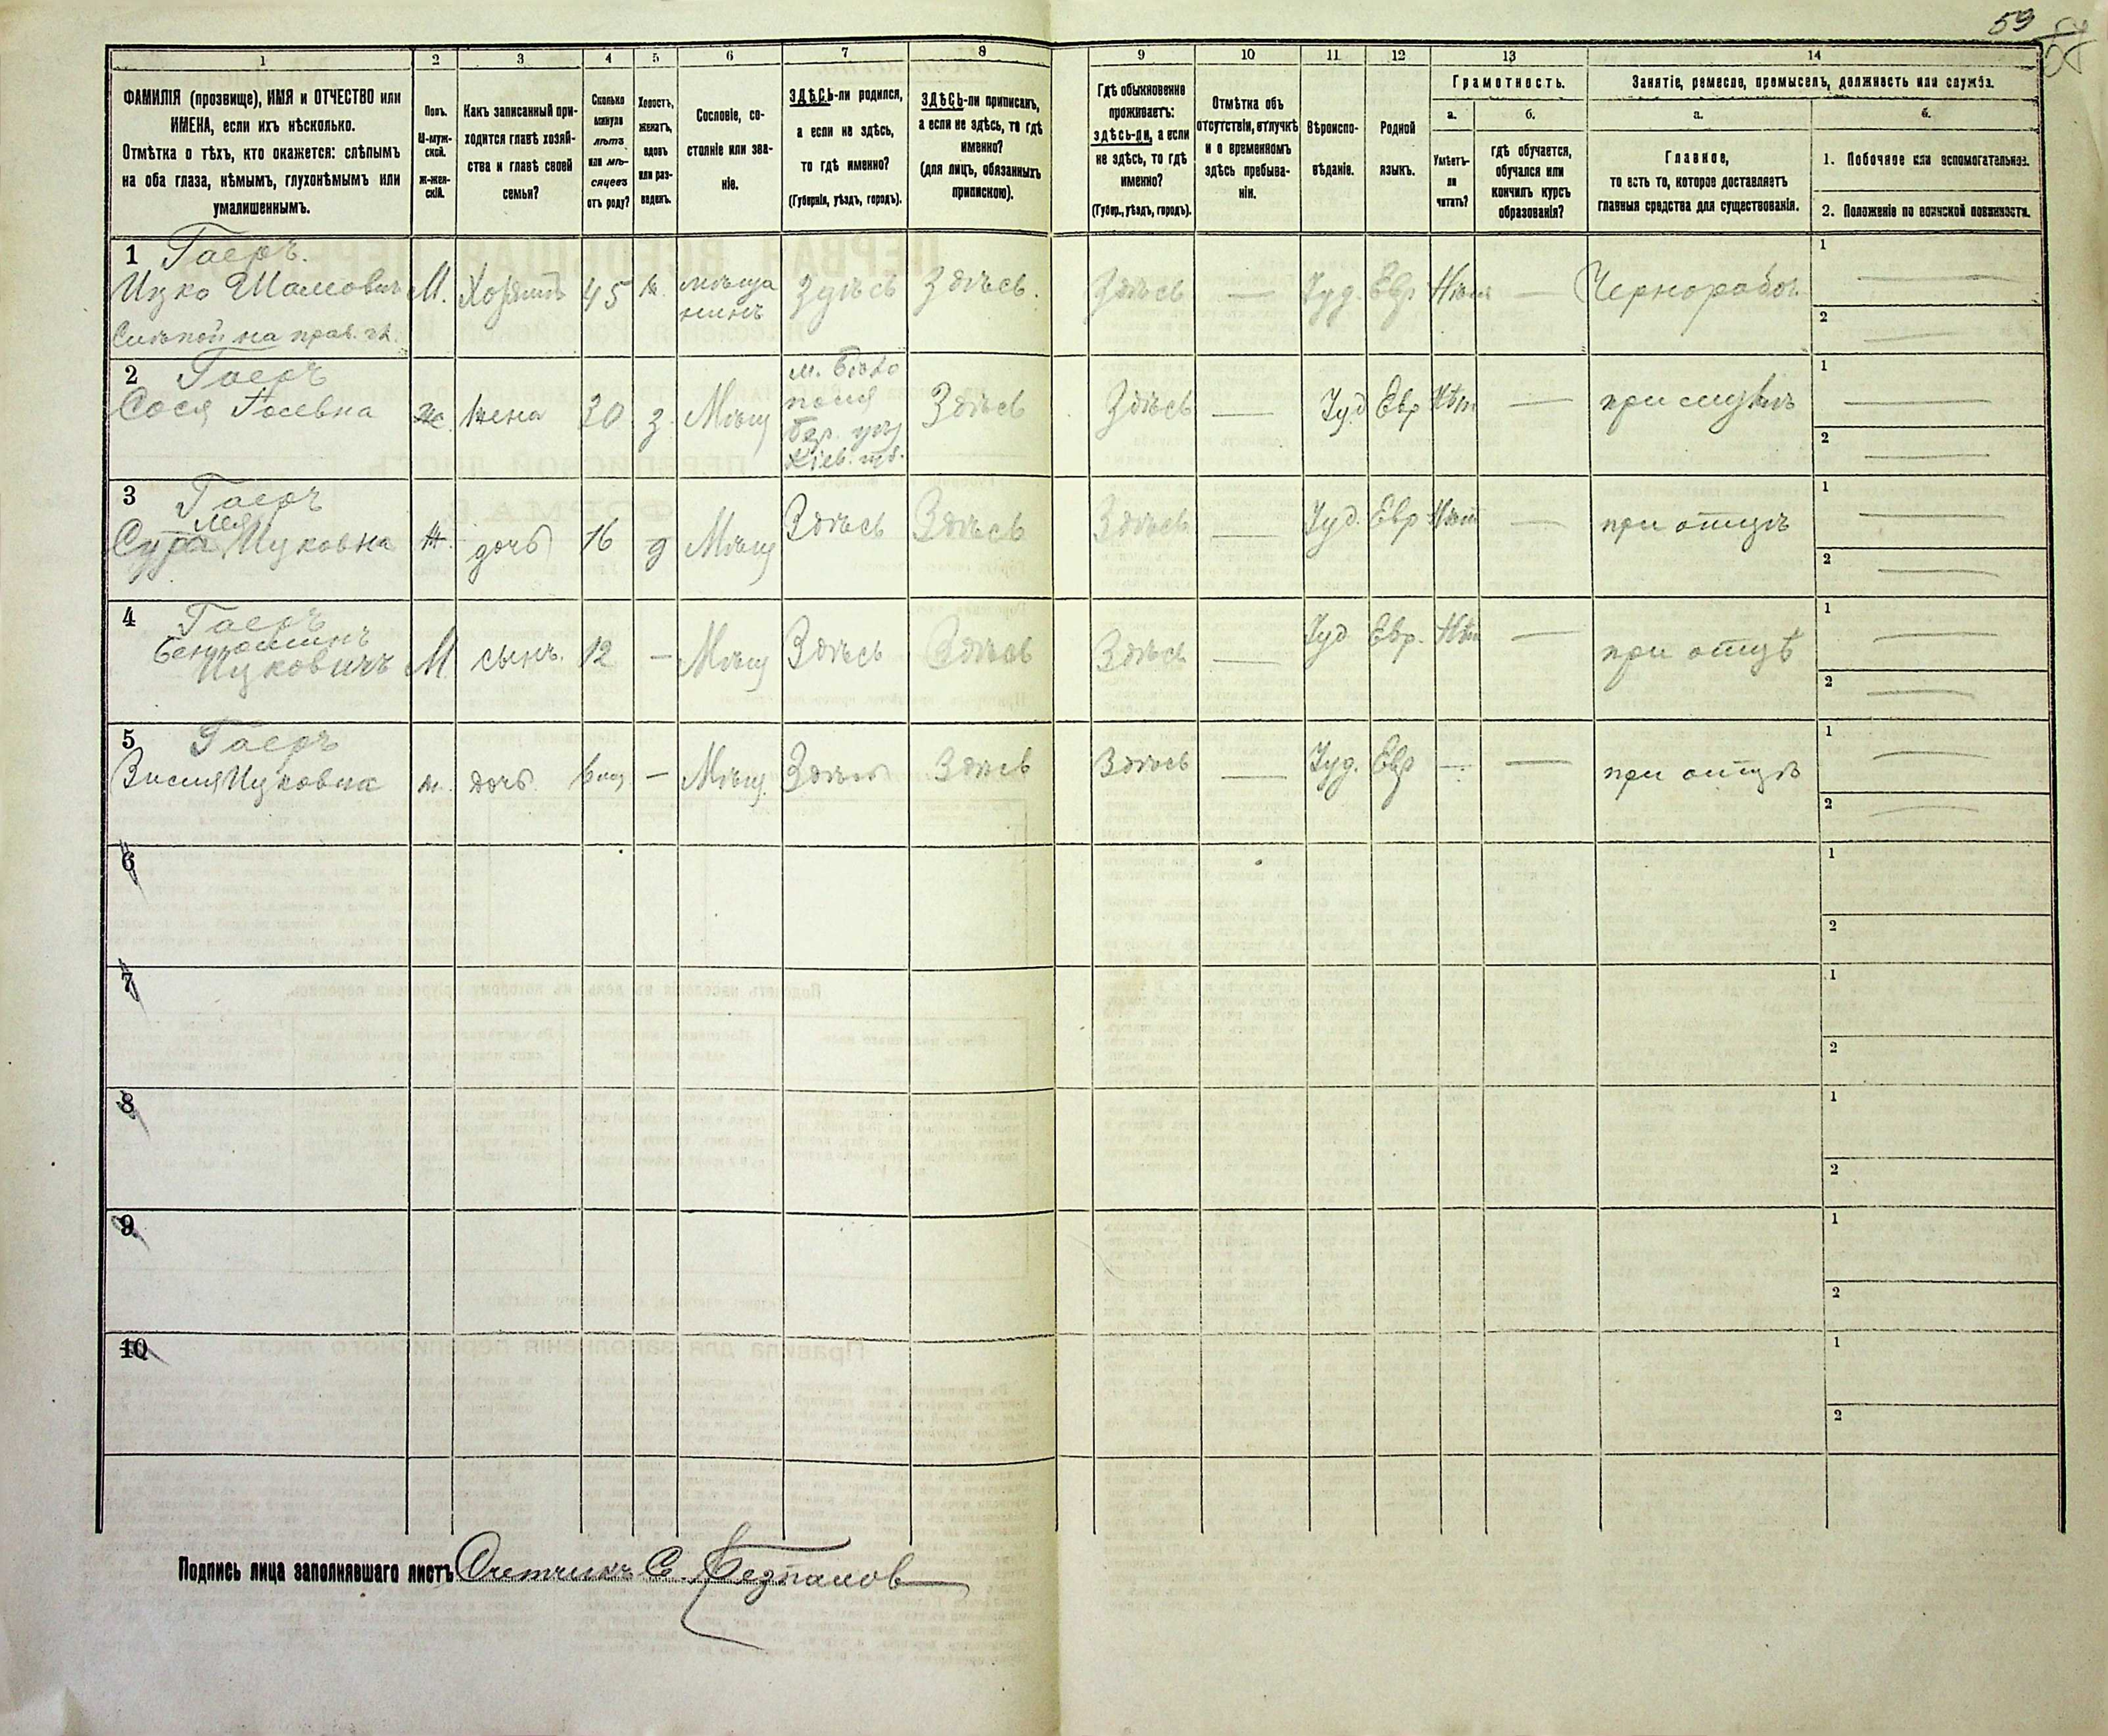 59
1 2 3 4 5 6 7 8 9 10 11 12 13 14
ФАМИЛІЯ (прозвище), ИМЯ и ОТЧЕСТВО или
ИМЕНА, если ихъ нѣсколько.
Отмѣтка о тѣхъ, кто окажется: слѣпымъ
на оба глаза, нѣмымъ, глухонѣмымъ или
умалишеннымъ.
Полъ.
М-муж-
ской.
Ж-жен-
скій.
Какъ записанный при-
ходится главѣ хозяй-
ства и главѣ своей
семьи?
Сколько
минуло
лѣтъ
или мѣ-
сяцевъ
отъ роду?
Холостъ,
женатъ,
вдовъ
или раз-
веденъ.
Сословіе, со-
стояніе или зва-
ніе.
ЗДѢСЬ-ли родился,
а если не здѣсь,
то гдѣ именно?
(Губернія, уѣздъ, городъ).
ЗДѢСЬ-ли приписанъ,
а если не здѣсь, то гдѣ
именно?
(для лицъ, обязанныхъ
припискою).
Гдѣ обыкновенно
проживаетъ:
здѣсь-ли, а если
не здѣсь, то гдѣ
именно?
(Губер., уѣздъ, городъ).
Отмѣтка объ
отсутствіи, отлучкѣ
и о временномъ
здѣсь пребыва-
ніи.
Вѣроиспо-
вѣданіе.
Родной
языкъ.
Грамотность.
а.
Умѣетъ-
ли
читать?
б.
гдѣ обучается,
обучался или
кончилъ курсъ
образованія?
Занятіе, ремесло, промыселъ, должность или служба.
а.
Главное,
то есть то, которое доставляетъ
главныя средства для существованія.
б.
1. Побочное или вспомогательное.
2. Положеніе по воинской повинности.
1 Гаеръ.
Ицко Шамовичъ М. Хозяинъ 45 ж. мѣща
нинъ Здѣсь Здѣсь. Здѣсь — Іуд. Евр Нѣтъ — Чернорабоч. 1 —
Слѣпой на прав. гл. 2 —
2 Гаеръ
Сося жена 30 з. Мѣщ Здѣсь Здѣсь — Іуд Евр Нѣт — при мужѣ 1 —
Кіев. губ. 2 —
3 Гаеръ
Лея
Сура Ицковна Ж. дочь 16 д Мѣщ Здѣсь Здѣсь Здѣсь — Іуд. Евр Нѣт — при отцѣ 1 —
2 —
4 Гаеръ
Беньоминъ
Ицковичъ М сынъ. 12 — Мѣщ Здѣсь Здѣсь Здѣсь — Іуд Евр. Нѣт — при отцѣ 1 —
2 —
5 Гаеръ
Ицковна дочь — Мѣщ. Здѣсь Здѣсь Здѣсь — Іуд. Евр — — при отцѣ 1 —
2 —
6 1
2
7 1
2
8 1
2
9 1
2
10 1
2
Подпись лица заполнявшаго листъ Счетчикъ С.